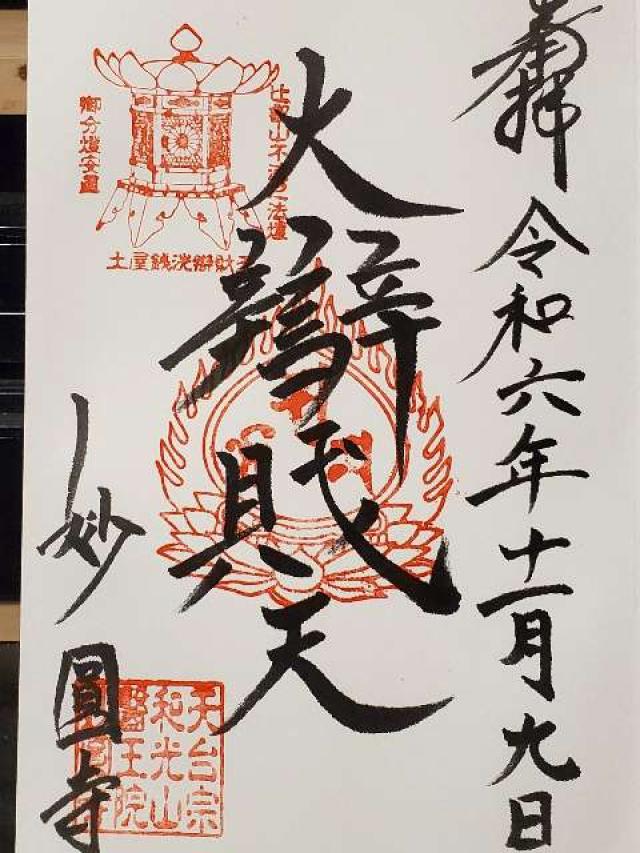 奉拝
令和六年十一月九日
大辯財天
妙圓寺
比叡山不滅之法燈
御分燈安置
土屋銭洗辯財天
天台宗
和光山
醫王院
妙圓寺